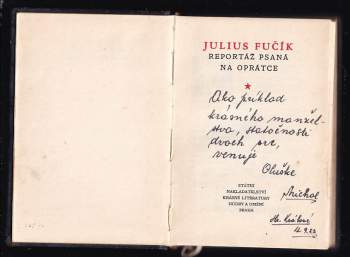 JULIUS FUČÍK
REPORTÁŽ PSANÁ
NA OPRÁTCE
Ako príklad
krásného manžel-
stva, statočnosti
dvoch sŕc,
venuje
Oluške
Michal
STÁTNÍ
NAKLADATELSTVÍ
KRÁSNÉ LITERATURY
HUDBY A UMĚNÍ
PRAHA